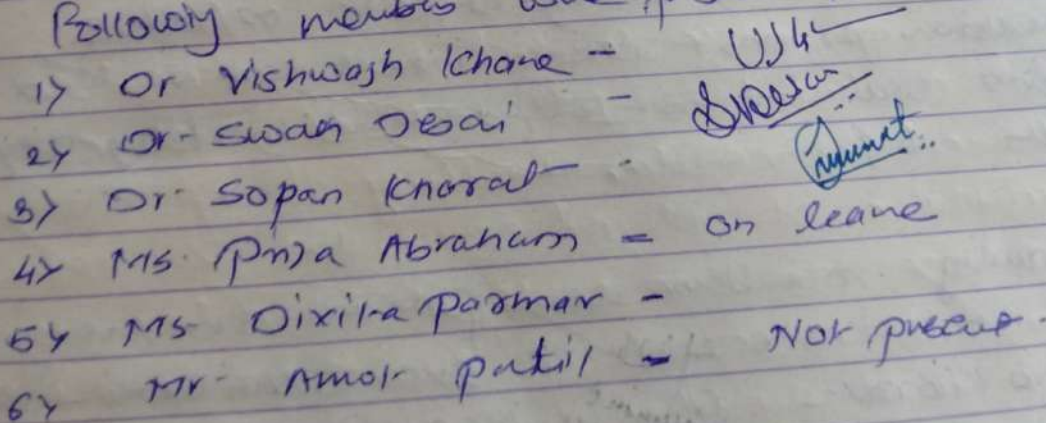 Following members
1) Dr Vishwash Khane -
2) Dr. Swan Desai -
3) Dr. Sopan Kharat - 
4) Ms. Priya Abraham = on leave
5) Ms Dixita Parmar -
6) Mr. Amol patil - Not present.